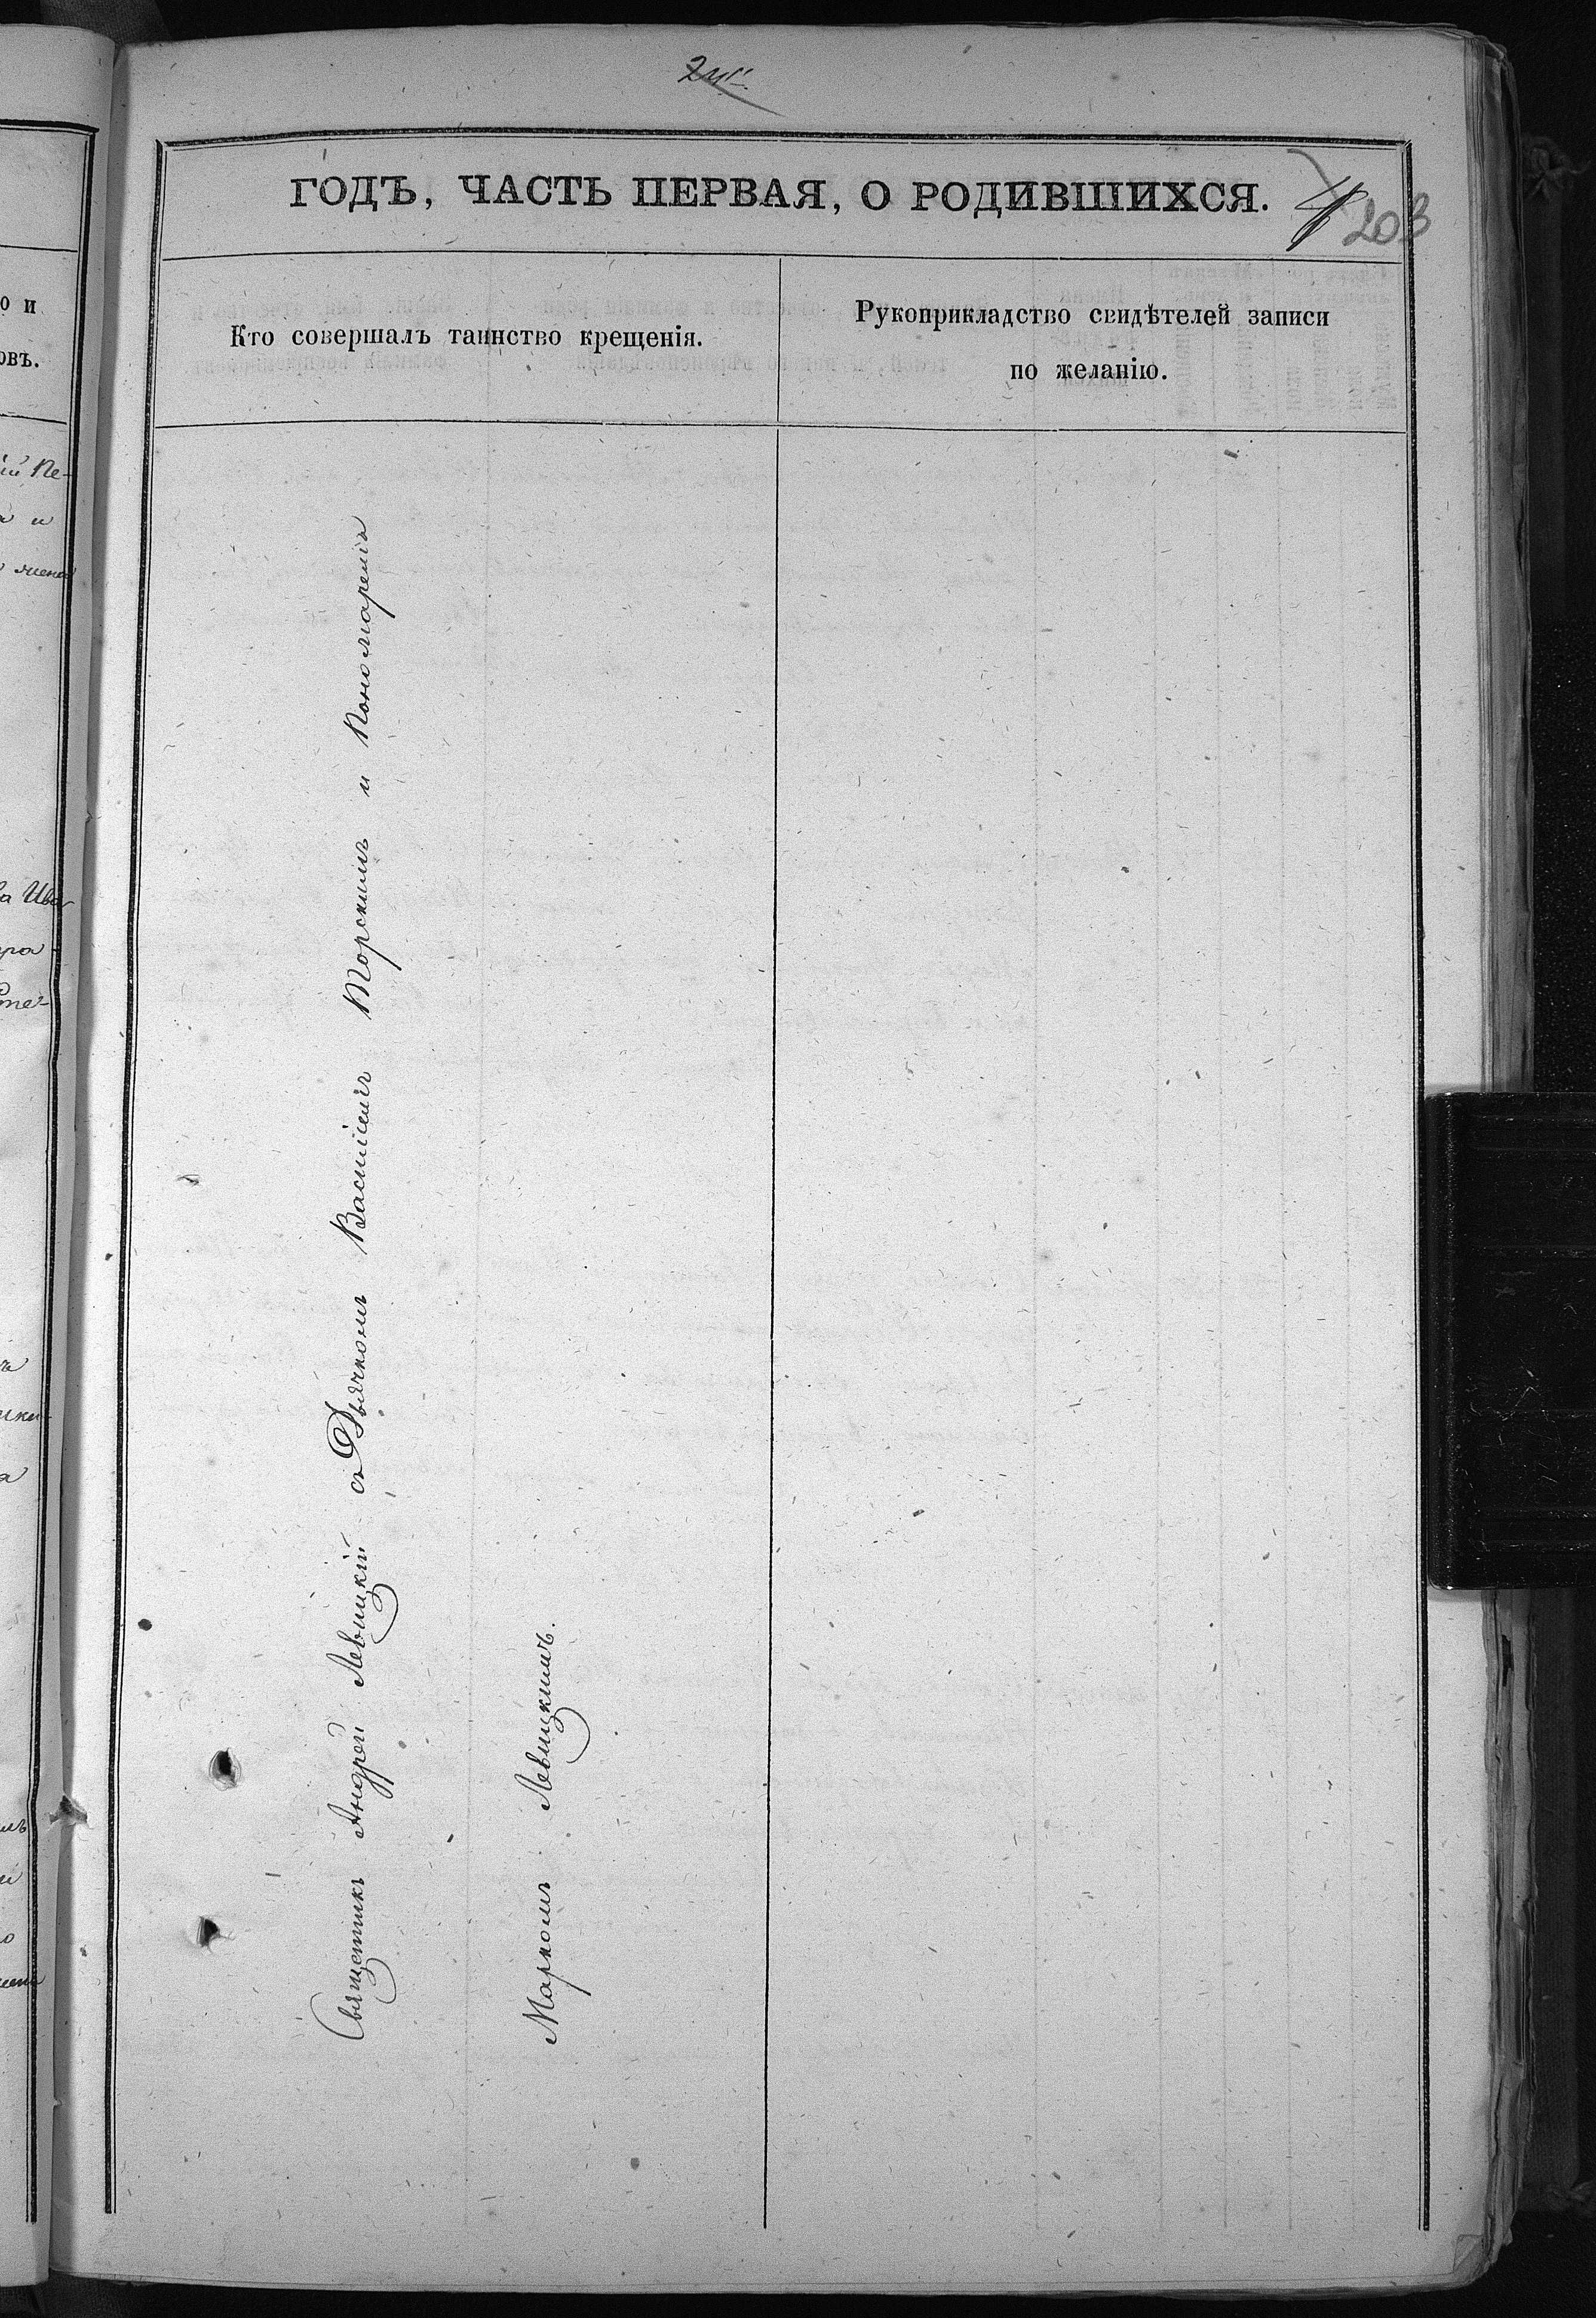 ГОДЪ, ЧАСТЬ ПЕРВАЯ, О РОДИВШИХСЯ.
203
Кто совершалъ таинство крещенія.
Рукоприкладство свидѣтелей записи
по желанію.
Священникъ Андрей Левицкій съ Дьячкомъ Василіемъ Торскимъ и Пономаремъ
Маркомъ Левицкимъ.
о и
овъ.